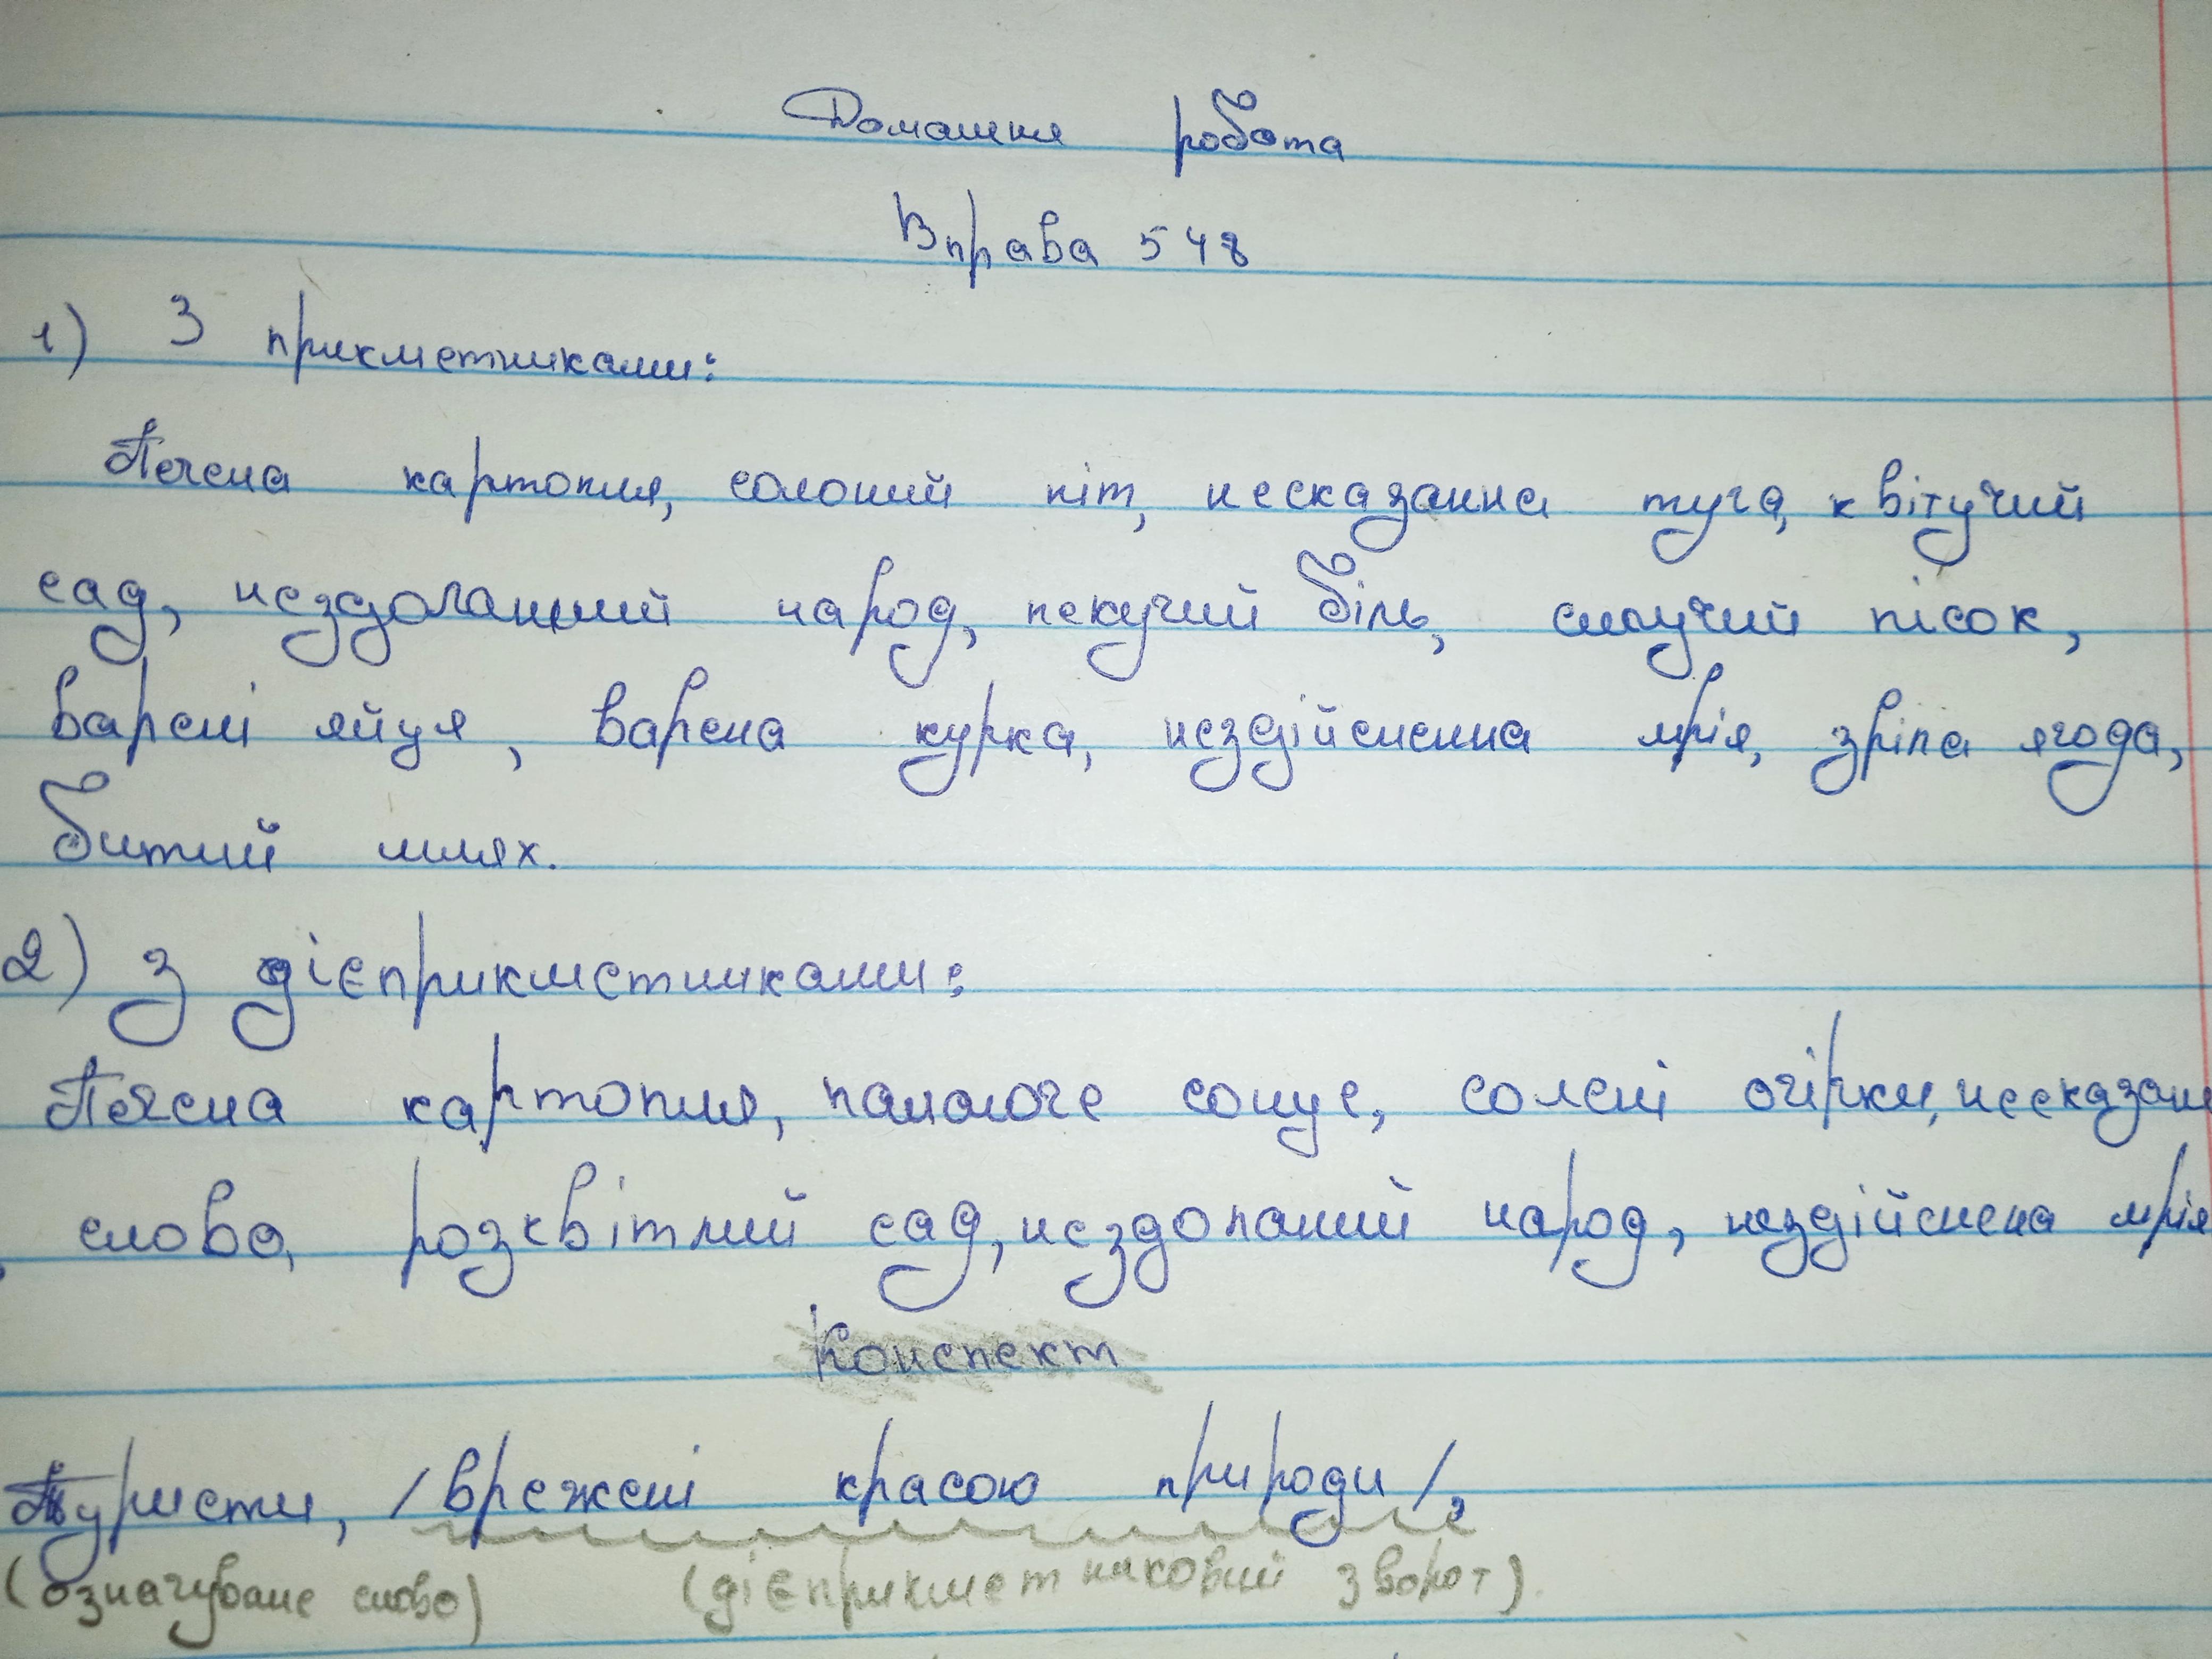 Домашня робота
Вправа 548
1) З прикметниками:
Печена картопля, солоний піт, несказанна туга, квітучий
сад, нездоланний народ, пекучий біль, сипучий пісок,
варені яйця, варена курка, нездійсненна мрія, зріла ягода,
битий шлях.
2) З дієприкметниками:
Печена картопля, палаюче сонце, солені огірки, несказане
слово, розквітлий сад, нездоланий народ, нездійснена мрія
Конспект
Туристи, /врежені красою природи/,
(означуване слово) (дієприкметниковий зворот).